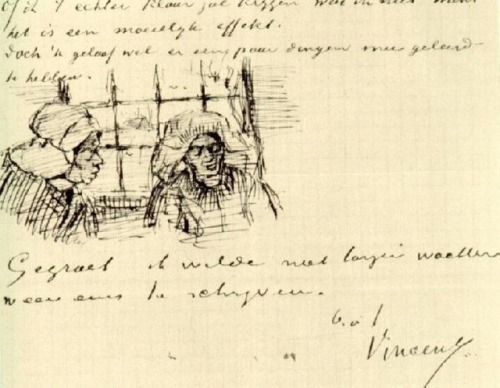 of ik 't echter klaar zal krijgen weet ik niet want
het is een moeielyk effekt.
doch 'k geloof wel er een paar dingen mee geleerd
te hebben.
Gegroet ik wilde niet langer wachten
weer eens te schryven.
b.à.t
Vincent